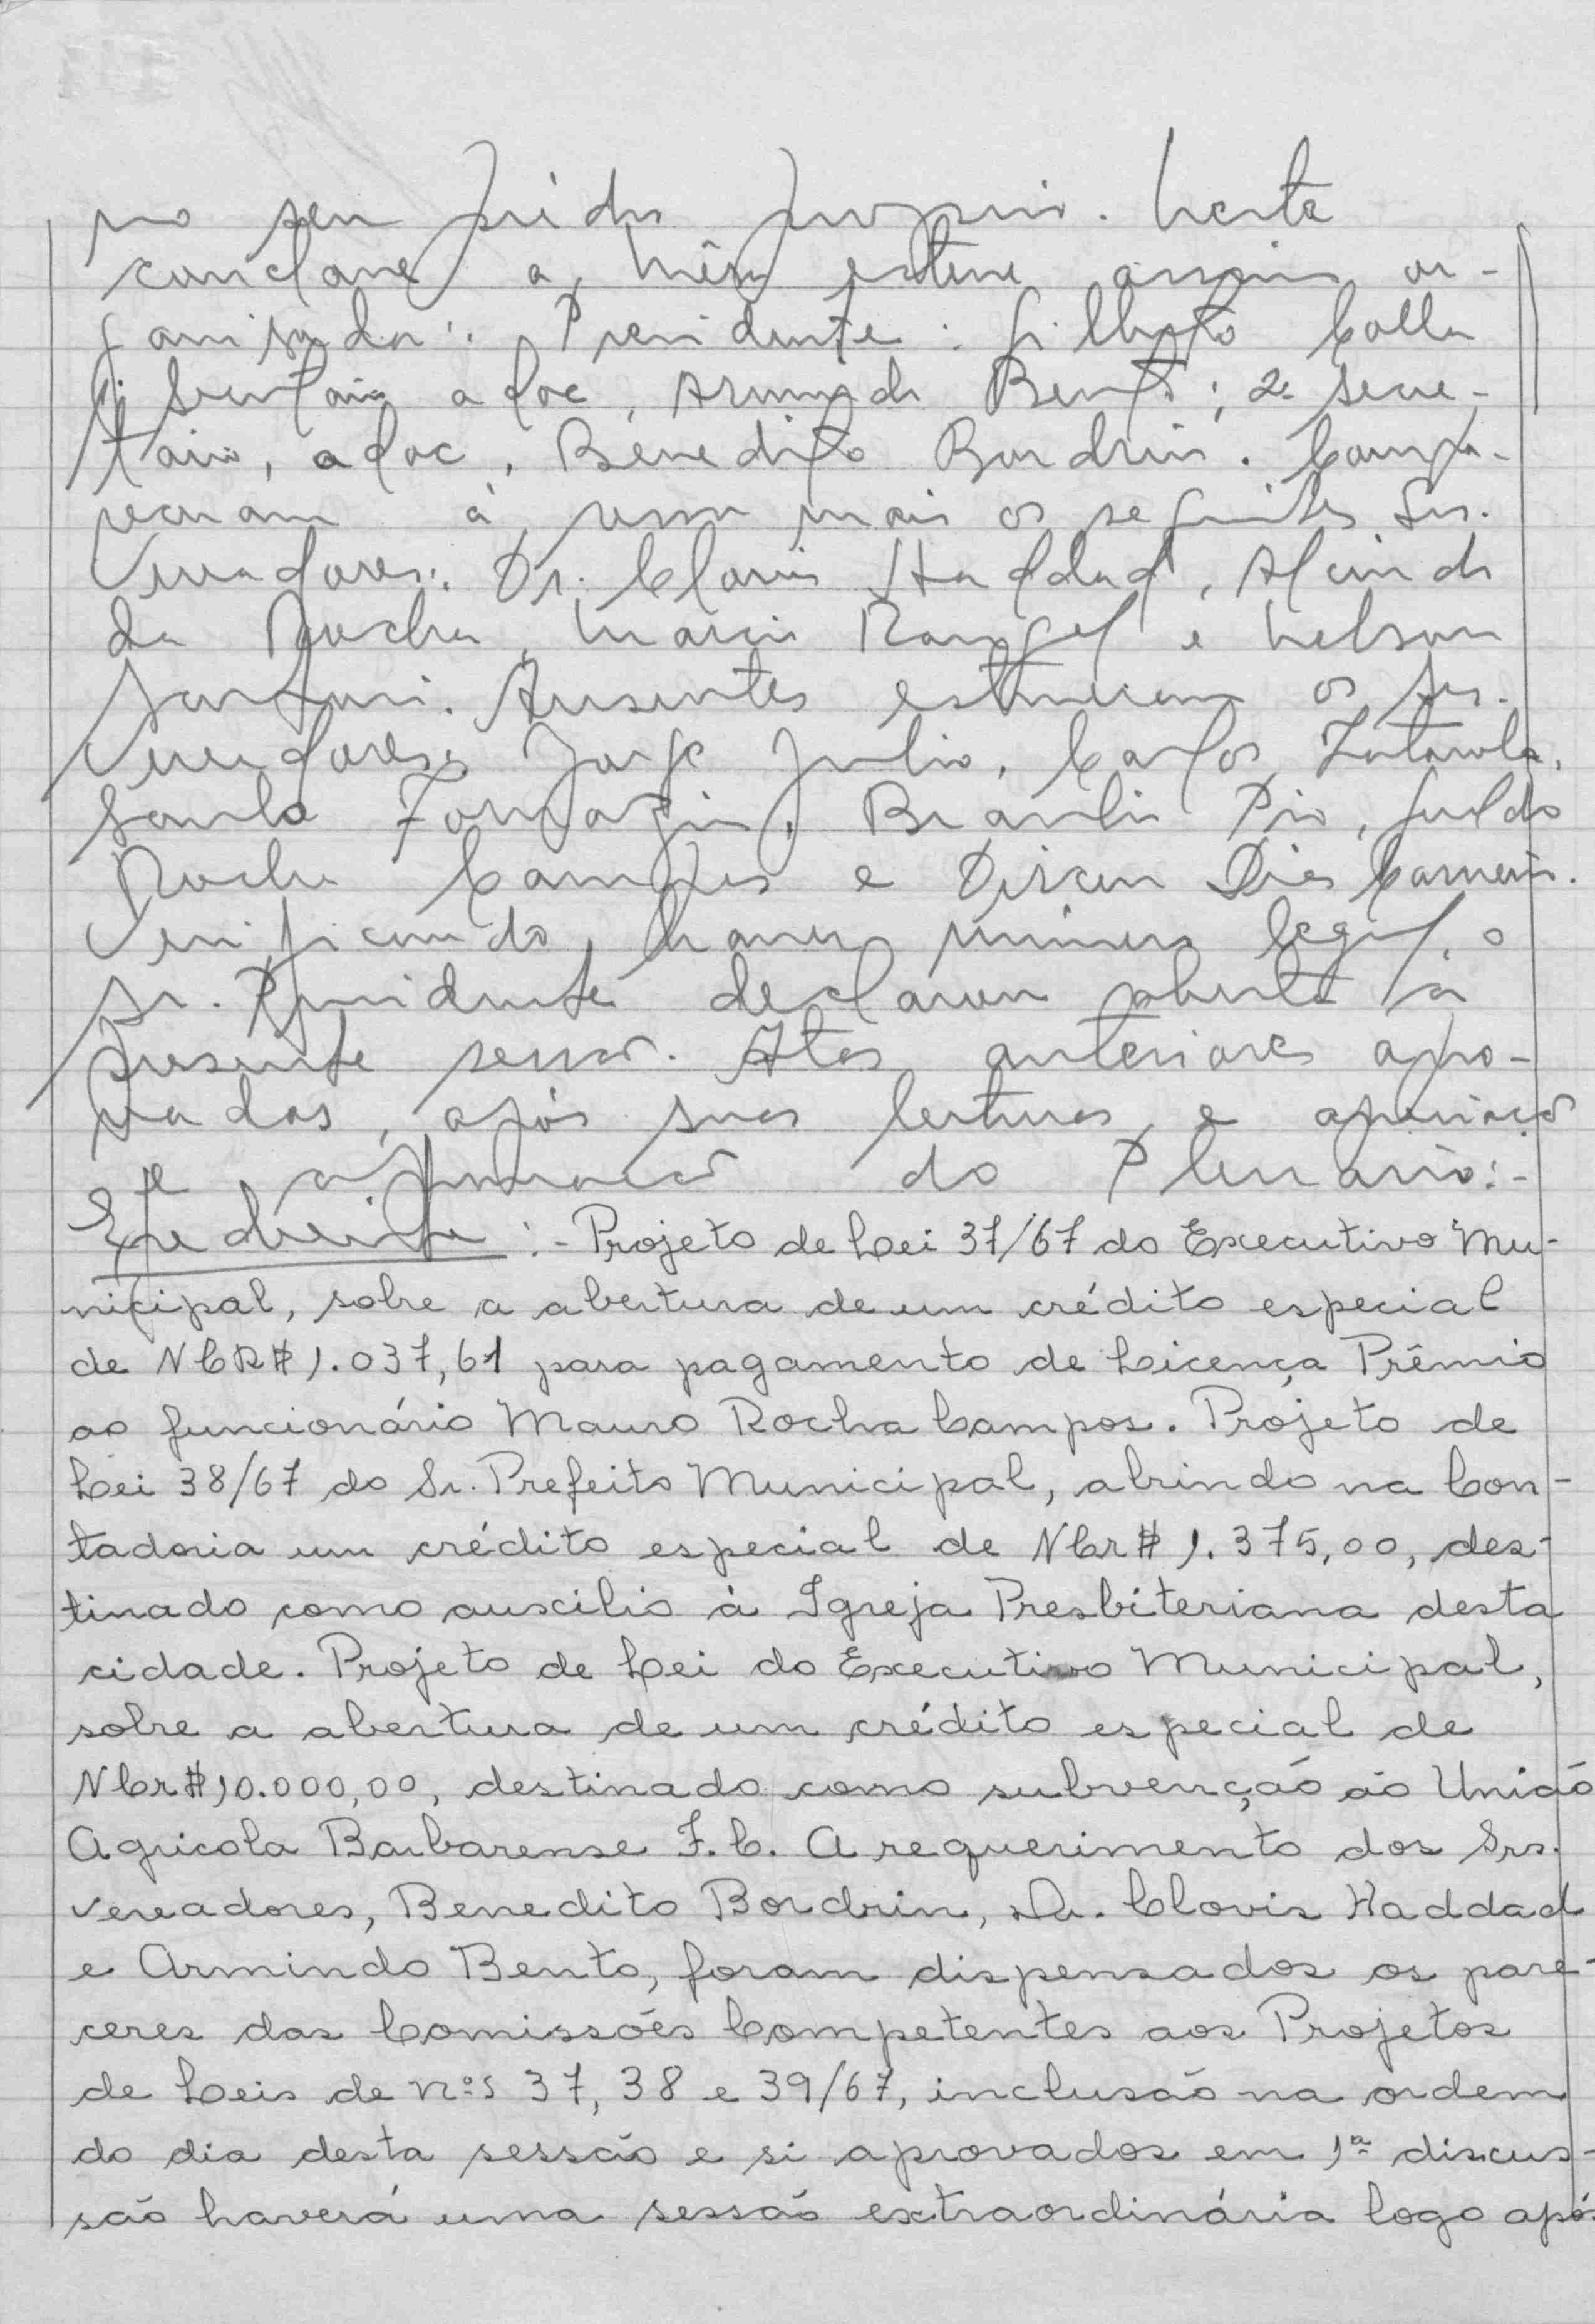 no seu prédio proprio. Neste
conclave a mêsa esteve assim or-
ganisada:. Presidente: Gilberto Calla
secretario adoc, Armindo Bento; 2º secre-
tario, adoc, Benedito Bordrin. Compa-
receram à mais os seguintes Srs.
Vereadores:. Dr. Clovis Haddad, Alcindo
da Rocha, Marcio Rangel e Nelson
Sartori. Ausentes estiveram os Srs.
Vereadores Jorge Julio, Carlos
Santo Fornazin, Braulio Pio,
Rocha Campos e Dirceu Dias Carneiro.
Verificando haver número legal, o
Sr. Presidente declarou aberta a
presente sessão. Atas anteriores apro-
vadas, após suas leituras e apreciação
e aprovação do Plenario:-
Expediente:- Projeto de Lei 37/67 do Executivo Mu-
nicipal, sobre a abertura de um crédito especial
de NCR$ 1.037,61 para pagamento de Licença Prêmio
ao funcionário Mauro Rocha Campos. Projeto de
Lei 38/67 do Sr. Prefeito Municipal, abrindo na Con-
tadoria um crédito especial de NCr$ 1.375,00, des-
tinado como auxilio à Igreja Presbiteriana desta
cidade. Projeto de Lei do Executivo Municipal,
sobre a abertura de um crédito especial de
NCr$ 10.000,00, destinado como subvenção ao União
Agricola Barbarense F.C. A requerimento dos Srs.
vereadores, Benedito Bordrin, Dr. Clovis Haddad
e Armindo Bento, foram dispensados os pare-
ceres das Comissões Competentes aos Projetos
de Leis de nºs 37, 38 e 39/67, inclusão na ordem
do dia desta sessão e si aprovados em 1ª discus-
são haverá uma sessão extraordinária logo após